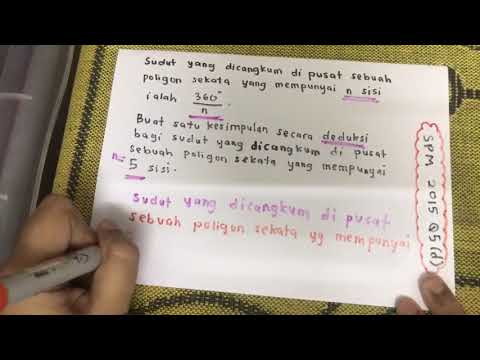 Sudut yang dicangkum di pusat sebuah
poligon sekata yang mempunyai n sisi
ialah 360°/n.
Buat satu kesimpulan secara deduksi
bagi sudut yang dicangkum di pusat
sebuah poligon sekata yang mempunyai
n=5 sisi.
Sudut yang dicangkum di pusat
sebuah poligon sekata yg mempunyai
SPM 2015 Q5(d)